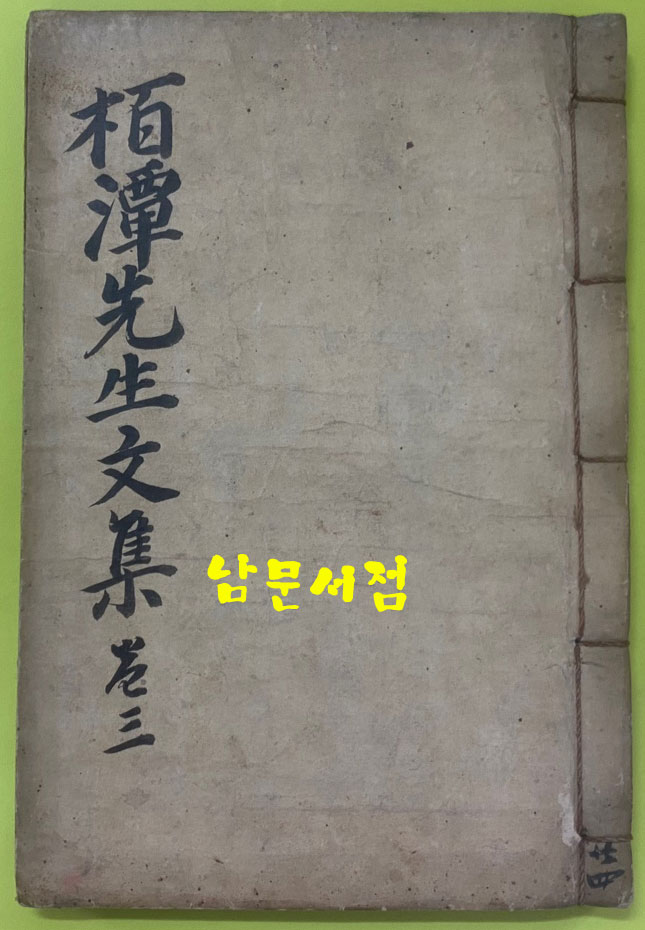 栢潭先生文集 卷三
남문서점
廿四